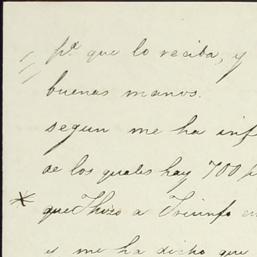 pa. que lo reciba, y
buenas manos.
segun me ha inf
de los quales hay 700 p
que hizo a Triunfo en
es me ha dicho que